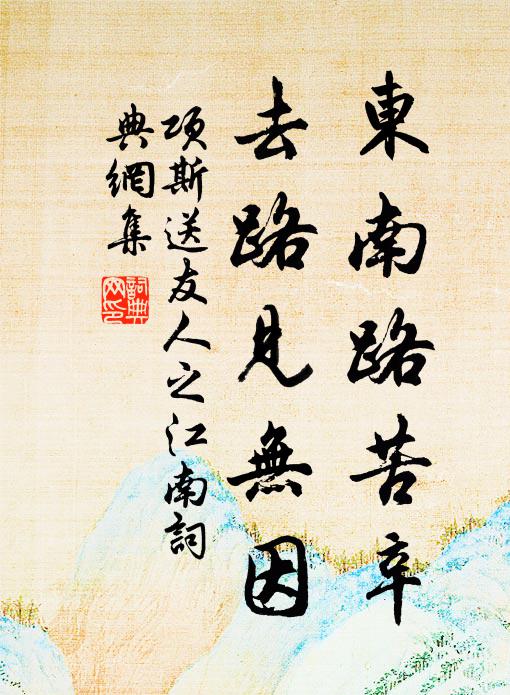 東南路苦辛
去路見無因
項斯送友人之江南詞
典網集
詞典
网印